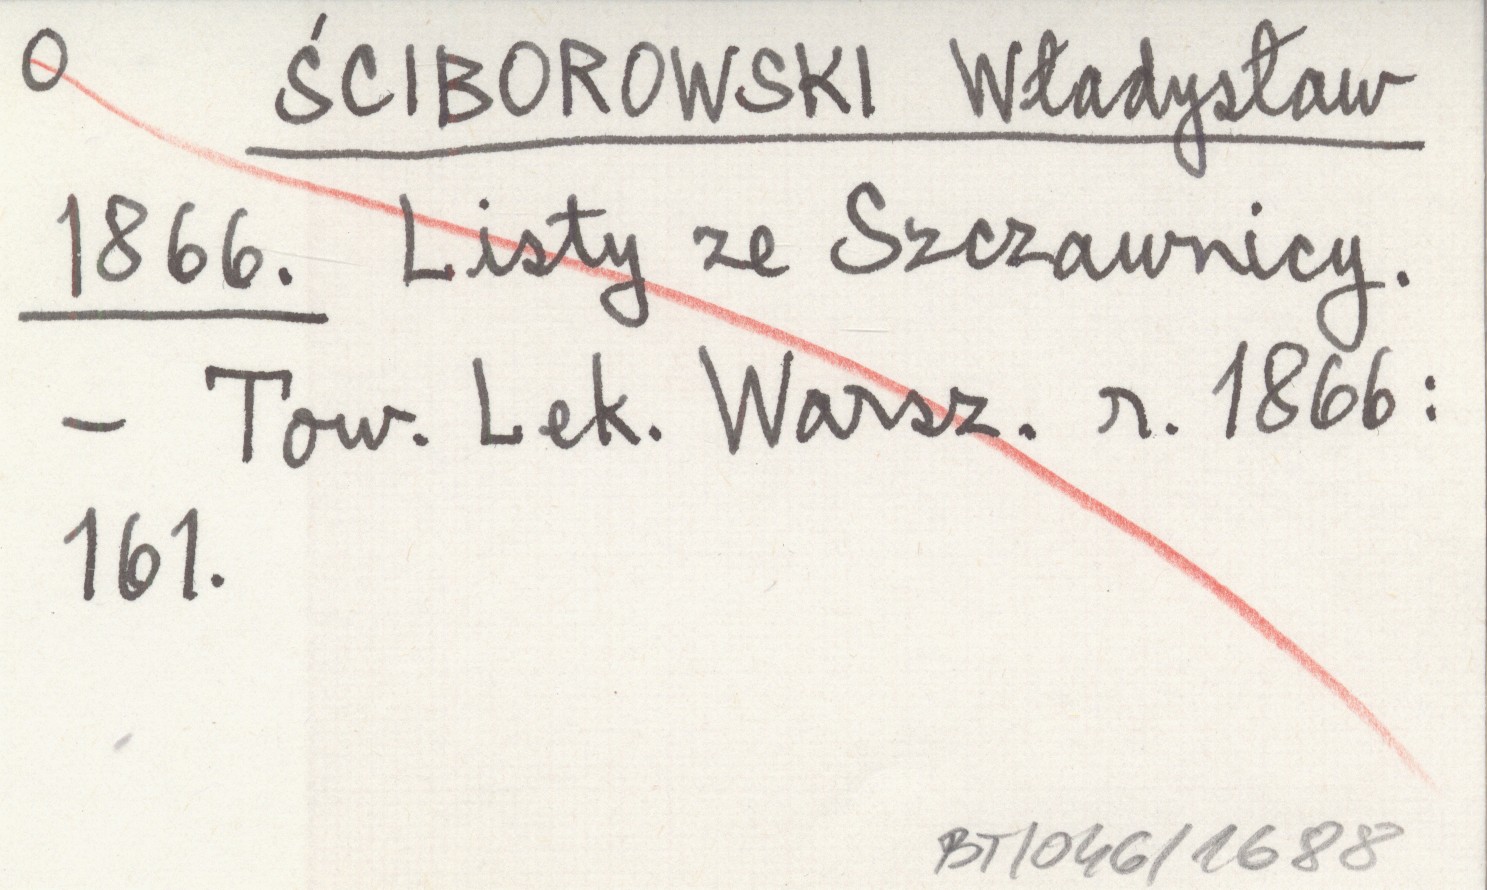 O ŚCIBOROWSKI Władysław
1866. Listy ze Szczawnicy.
– Tow. Lek. Warsz. r. 1866:
161.
BT/046/1688